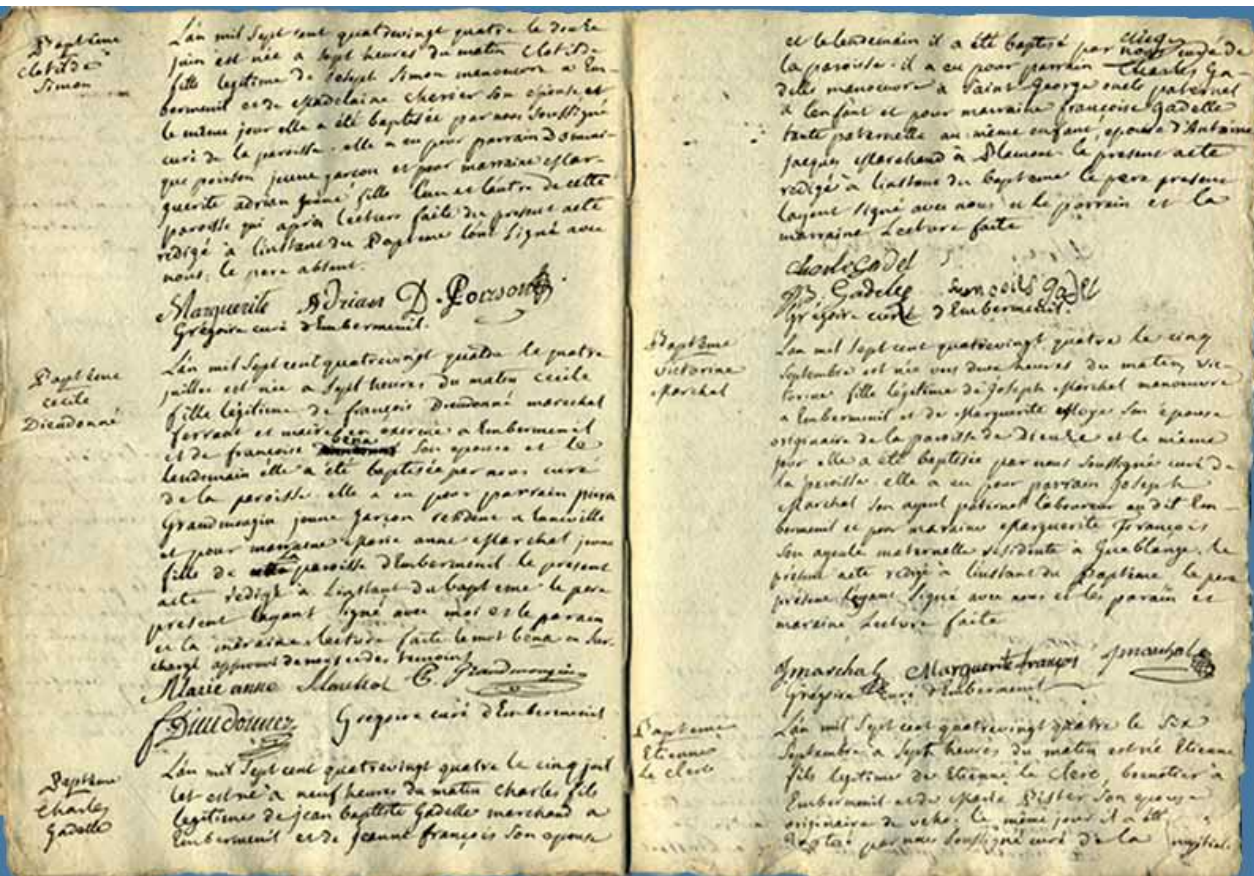 Baptême
Clotilde
Simon
L'an mil sept cent quatrevingt quatre le douze
juin est née à sept heures du matin Clotilde
fille legitime de Joseph Simon manoeuvre a Em-
bermenil et de Madelaine cherier son epouse et
le même jour elle a été baptisée par nous soussigné
curé de la paroisse. elle a eu pour parrain Domini-
que poirson jeune garcon et pour marraine Mar-
guerite adrian jeune fille l'un et l'autre de cette
paroisse qui après lecture faite du present acte
redigé à l'instant du Baptême l'ont signé avec
nous. le pere absent.
Marguerite Adrian D. Poirson
Grégoire curé d'Embermenil.
Baptême
cecile
Dieudonné
L'an mil sept cent quatrevingt quatre le quatre
juillet est née a sept heures du matin cecile
fille légitime de françois Dieudonné marechal
ferrant et maire en exercice a Embermenil
et de francoise bena son epouse et le
lendemain elle a été baptisée par nous curé
de la paroisse elle a eu pour parrain pierre
Grandmougin jeune garcon residene a
et pour marraine Marie anne Marchal jeune
fille de la paroisse d'Embermenil. le present
acte redigé à l'instant du baptême le pere
present layant signé avec moi et le parain
et la maraine lecture faite le mot bena en sur-
charge approuvé de nous et des temoins
Marie anne C. Grandmougin
f Dieudonnez Gregoire curé d'Embermenil
Baptême
Charles
Gadelle
L'an mil sept cent quatrevingt quatre le cinq juil
let est né a neuf heures du matin Charles fils
legitime de jean baptiste Gadelle marchand a
Embermenil et de Jeanne françois son epouse
et le lendemain il a été baptisé par nous curé de
la paroisse. il a eu pour parrain Charles Ga-
delle manoeuvre à Saint George oncle paternel
à l'enfant et pour marraine françoise Gadelle
tante paternelle au même enfant, epouse d'Antoine
jacques Marchand à Blamont. le present acte
redigé à l'instant du baptême le pere present
layant signé avec nous et le parrain et la
marraine Lecture faite
Charle Gadel
Gadelle Gadel
Grégoire curé d'Embermenil.
Baptême
victorine
Marchal
L'an mil sept cent quatrevingt quatre le cinq
septembre est née vers deux heures du matin vic-
torine fille légitime de Joseph Marchal manoeuvre
a Embermenil et de Marguerite Moye son epouse
originaire de la paroisse de Dieuze et le même
jour elle a été baptisée par nous soussigné curé de
la paroisse. elle a eu pour parrain Joseph
Marchal son ayeul paternel laboureur au dit Em-
bermenil et pour maraine Marguerite François
son ayeule maternelle residente à Gueblange. le
présent acte redigé à l'instant du Baptême le pere
présent layant signé avec nous et les parain et
maraine Lecture faite
Jmarchal Marguerite françois Jmarchal
Grégoire curé d'Embermenil
Baptême
Etienne
le clerc
L'an mil sept cent quatrevingt quatre le six
septembre à sept heures du matin est né Etienne
fils legitime de Etienne le Clerc, bonnetier à
Embermenil et de Marie Pister son epouse
originaire de veho. le même jour il a été
baptisé par nous soussigné curé de la